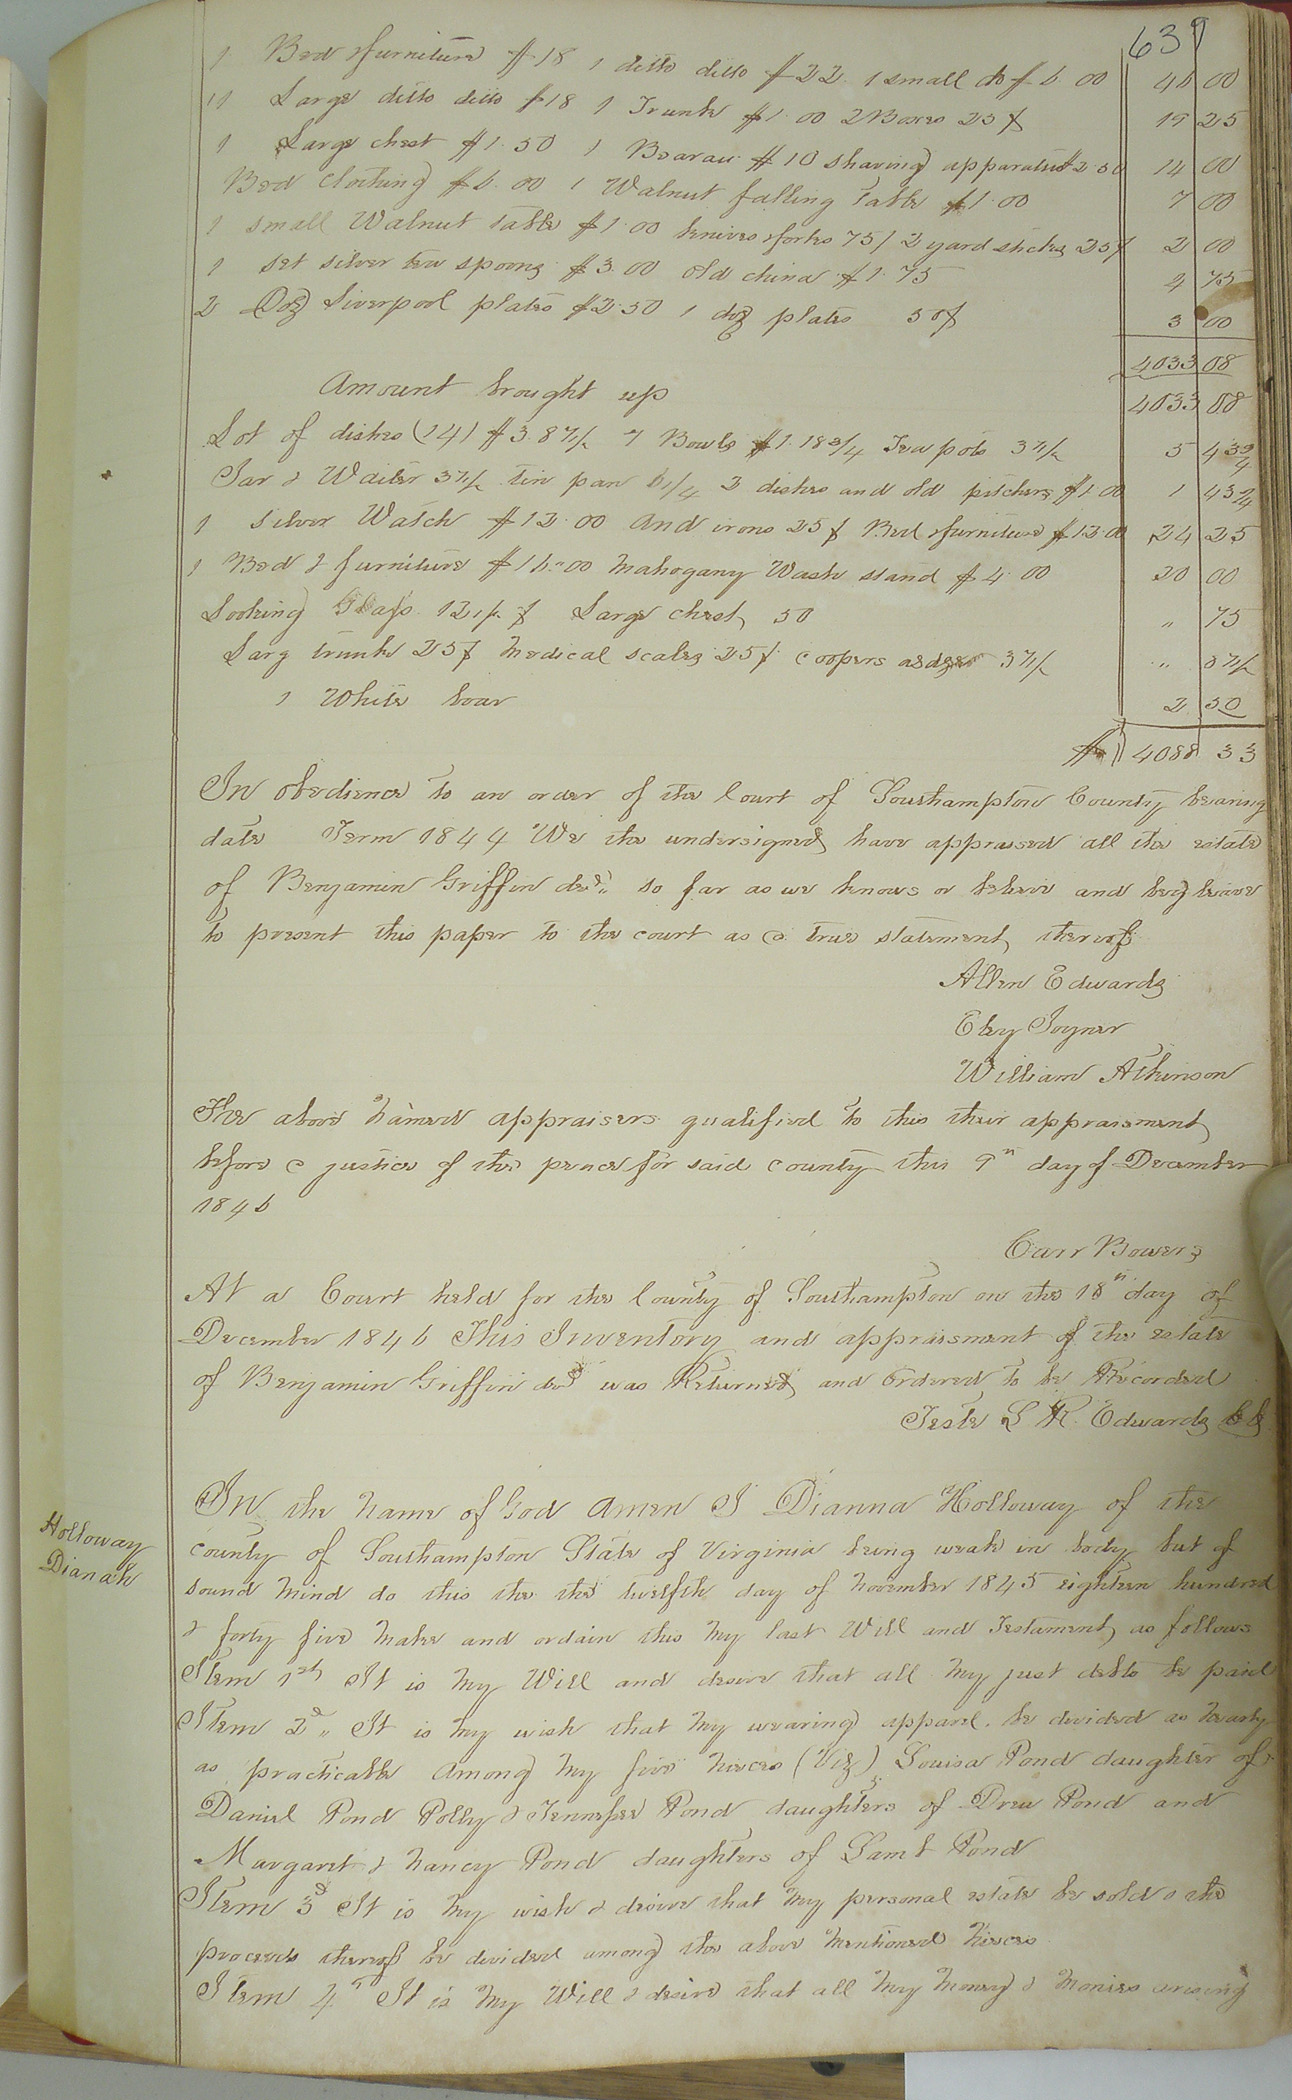 639
1 Bed & furniture $18 1 ditto ditto $22 1 small do $6.00 46 00
11 Large ditto ditto $18 1 Trunk $1.00 2 Boxes 25¢ 19 25
1 Large chest $1.50 1 Bearau $10 shaving apparatus $2.50 14 00
Bed clothing $6.00 1 Walnut falling table $1.00 7 00
1 small Walnut table $1.00 knives & forks 75/ 2 yard sticks 25¢ 2 00
1 set silver tea spoons $3.00 old china $1.75 4 75
2 Doz Liverpool plates $2.50 1 doz plates 50¢ 3 00
4033 08
Amount brought up 4033 08
Lot of dishes (14) $3.87 1/2 7 Bowls $1.18 3/4 Tea pots 37 1/2 5 43 3/4
Jar & Waiter 37 1/2 tin pan 6 1/4 2 dishes and old pitchers $1.00 1 43 3/4
1 silver Watch $12.00 And irons 25¢ Bed & furniture $12.00 24 25
1 Bed & furniture $16.00 Mahogany Wash stand $4.00 20 00
Looking Glass 12 1/2 ¢ Large chest 50 " 75
Larg trunk 25¢ Medical scales 25¢ coopers 37 1/2 " 87 1/2
1 White boar 2 50
$ 4088 33
In obedience to an order of the Court of Southampton County bearing
date Term 1844 We the undersigned have appraised all the estate
of Benjamin Griffin decd. so far as we knows or beleive and beg leave
to present this paper to the court as a true statement thereof
Allen Edwards
Eley Joyner
William Atkinson
The above named appraisers qualified to this their appraisment
before a justice of the peace for said county this 9th day of December
1846
Carr Bowers
At a Court held for the County of Southampton on the 18th day of
December 1846 This Inventory and appraisment of the estate
of Benjamin Griffin decd was Returned and Ordered to be Recorded
Teste L R Edwards
Holloway
Dianah
In the Name of God Amen I Dianna Holloway of the
county of Southampton State of Virginia being weak in body but of
sound mind do this the the twelfth day of November 1845 eighteen hundred
& forty five make and ordain this my last Will and Testament as follows
Item 1st It is my Will and desire that all my just debts be paid
Item 2d It is my wish that my wearing apparel be divided as nearly
as practicable among my five nieces (Viz) Louisa Pond daughter of
Daniel Pond Polly & Tennessee Pond daughters of Drew Pond and
Margaret & Nancy Pond daughters of Saml Pond
Item 3d It is my wish & desire that my personal estate be sold & the
proceeds thereof be divided among the above mentioned nieces
Item 4th It is my Will & desire that all my money & monies arising